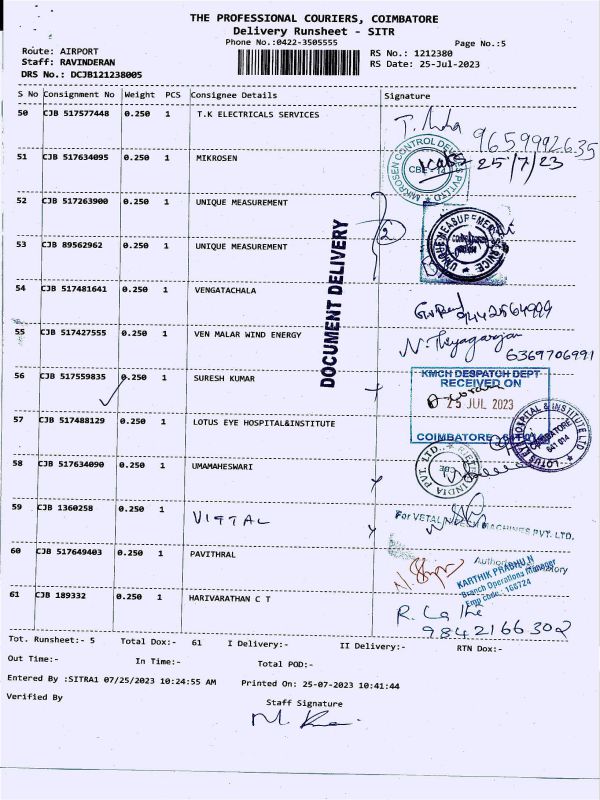 THE PROFESSIONAL COURIERS, COIMBATORE
Delivery Runsheet - SITR
Phone No.:0422-3505555
Page No.:5
Route: AIRPORT
RS No.: 1212380
Staff: RAVINDERAN
RS Date: 25-Jul-2023
DRS No.: DCJB121238005
S No Consignment No Weight PCS Consignee Details Signature
50 CJB 517577448 0.250 1 T.K ELECTRICALS SERVICES
9659992635
51 CJB 517634095 0.250 1 MIKROSEN
MICROSEN CONTROL DEVICES PVT LTD
CBE - 14
25/7/23
52 CJB 517263900 0.250 1 UNIQUE MEASUREMENT
2
53 CJB 89562962 0.250 1 UNIQUE MEASUREMENT
UNIQUE MEASUREMENT
DOCUMENT DELIVERY
54 CJB 517481641 0.250 1 VENGATACHALA
9442564999
55 CJB 517427555 0.250 1 VEN MALAR WIND ENERGY
N. Thyagarajan
6369706991
56 CJB 517559835 0.250 1 SURESH KUMAR
KMCH DESPATCH DEPT
RECEIVED ON
25 JUL 2023
COIMBATORE - 641 014
57 CJB 517488129 0.250 1 LOTUS EYE HOSPITAL&INSTITUTE
LOTUS EYE HOSPITAL & INSTITUTE LTD
COIMBATORE
641 014
58 CJB 517634090 0.250 1 UMAMAHESWARI
INDIA PVT. LTD.
CBE
59 CJB 1360258 0.250 1 VITTAL
For VETAL MACHINES PVT. LTD.
60 CJB 517649403 0.250 1 PAVITHRAL
KARTHIK PRABHU.N
Branch Operations Manager
Emp code: 166724
61 CJB 189332 0.250 1 HARIVARATHAN C T
9842166302
Tot. Runsheet:- 5 Total Dox:- 61 I Delivery:- II Delivery:- RTN Dox:-
Out Time:- In Time:- Total POD:-
Entered By :SITRA1 07/25/2023 10:24:55 AM Printed On: 25-07-2023 10:41:44
Verified By
Staff Signature